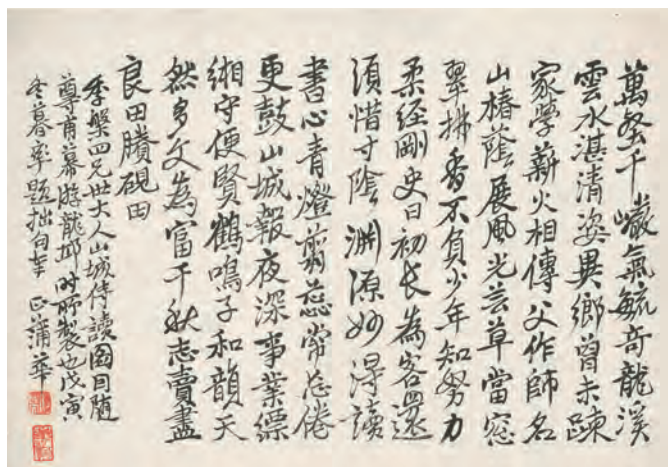 萬壑千巖氣毓奇龍溪
雲水湛清姿異鄉曾未疎
家學薪火相傳父作師名
山椿蔭展風光芸草當窗
翠拂香不負少年知努力
柔經剛史日初長為客還
須惜寸陰淵源妙得讀
書心青燈剪蕊常忘倦
更鼓山城報夜深事業縹
緗守便賢鶴鳴子和韻天
然多文為富千秋志賣盡
良田賸硯田
季槃四兄世大人山城侍讀圖因隨
尊甫幕游龍邱時所製也戊寅
冬暮率題拙句奉正蒲華